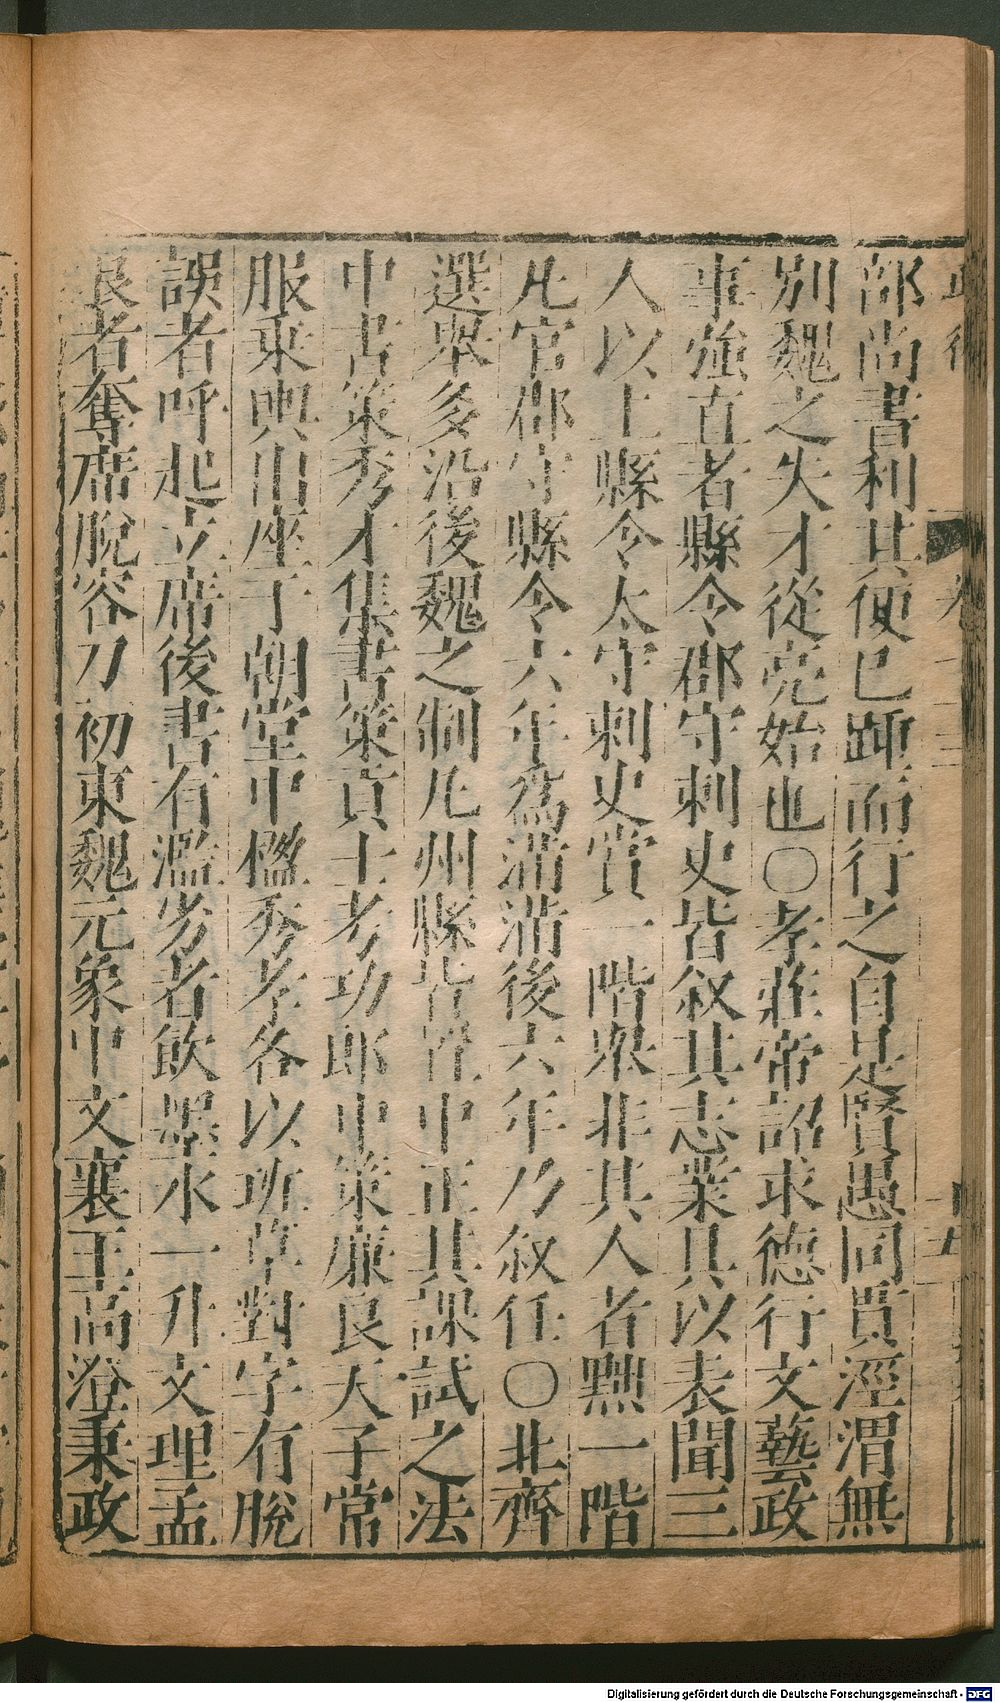 部尚書利其便己踵而行之自是賢愚同貫涇渭無
別魏之失才從亮始也○孝莊帝詔求德行文藝政
事強直者縣令郡守刺史皆叙其志業具以表聞三
人以上縣令太守刺史賞一階舉非其人者黜一階
凡官郡守縣令六年爲滿滿後六年乃叙任○北齊
選舉多沿後魏之制凡州縣皆置中正其課試之法
中書策秀才集書策貢士考功郎中策廉良天子常
服乘輿出座于朝堂中楹秀孝各以班草對字有脫
誤者呼起立席後書有濫劣者飲墨水一升文理孟
浪者奪席脫容刀初東魏元象中文襄王高澄秉政
Digitalisierung gefördert durch die Deutsche Forschungsgemeinschaft - DFG